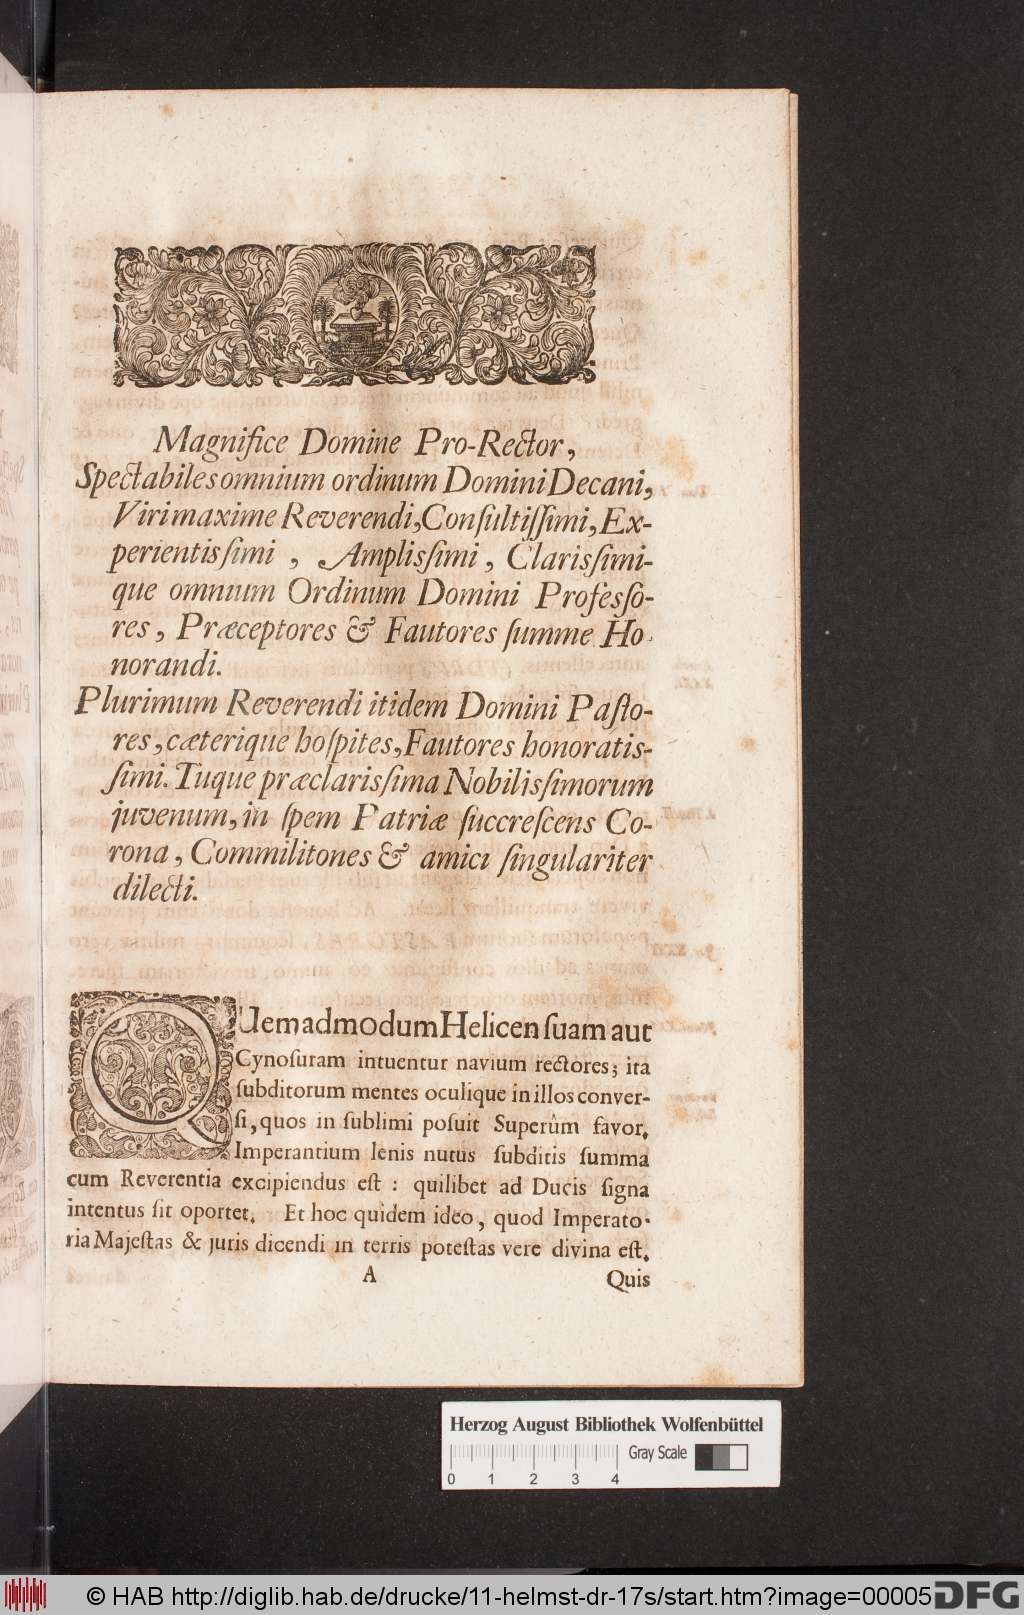 Magnifice Domine Pro-Rector,
Spectabiles omnium ordinum Domini Decani,
Viri maxime Reverendi, Conſultiſſimi, Ex-
perientisſimi , Amplisſimi , Clarisſimi-
que omnium Ordinum Domini Profesſo-
res , Præceptores & Fautores ſumme Ho-
norandi.
Plurimum Reverendi itidem Domini Paſto-
res, cæterique hoſpites, Fautores honoratis-
ſimi. Tuque præclarisſima Nobilisſimorum
juvenum, in ſpem Patriæ ſuccreſcens Co-
rona , Commilitones & amici ſingulariter
dilecti.
QUemadmodum Helicen ſuam aut
Cynoſuram intuentur navium rectores; ita
ſubditorum mentes oculique in illos conver-
ſi, quos in ſublimi poſuit Superûm favor.
Imperantium lenis nutus ſubditis ſumma
cum Reverentia excipiendus eſt : quilibet ad Ducis ſigna
intentus ſit oportet. Et hoc quidem ideo , quod Imperato-
ria Majeſtas & juris dicendi in terris poteſtas vere divina eſt.
A Quis
Herzog August Bibliothek Wolfenbüttel
Gray Scale
0 1 2 3 4
© HAB http://diglib.hab.de/drucke/11-helmst-dr-17s/start.htm?image=00005
DFG